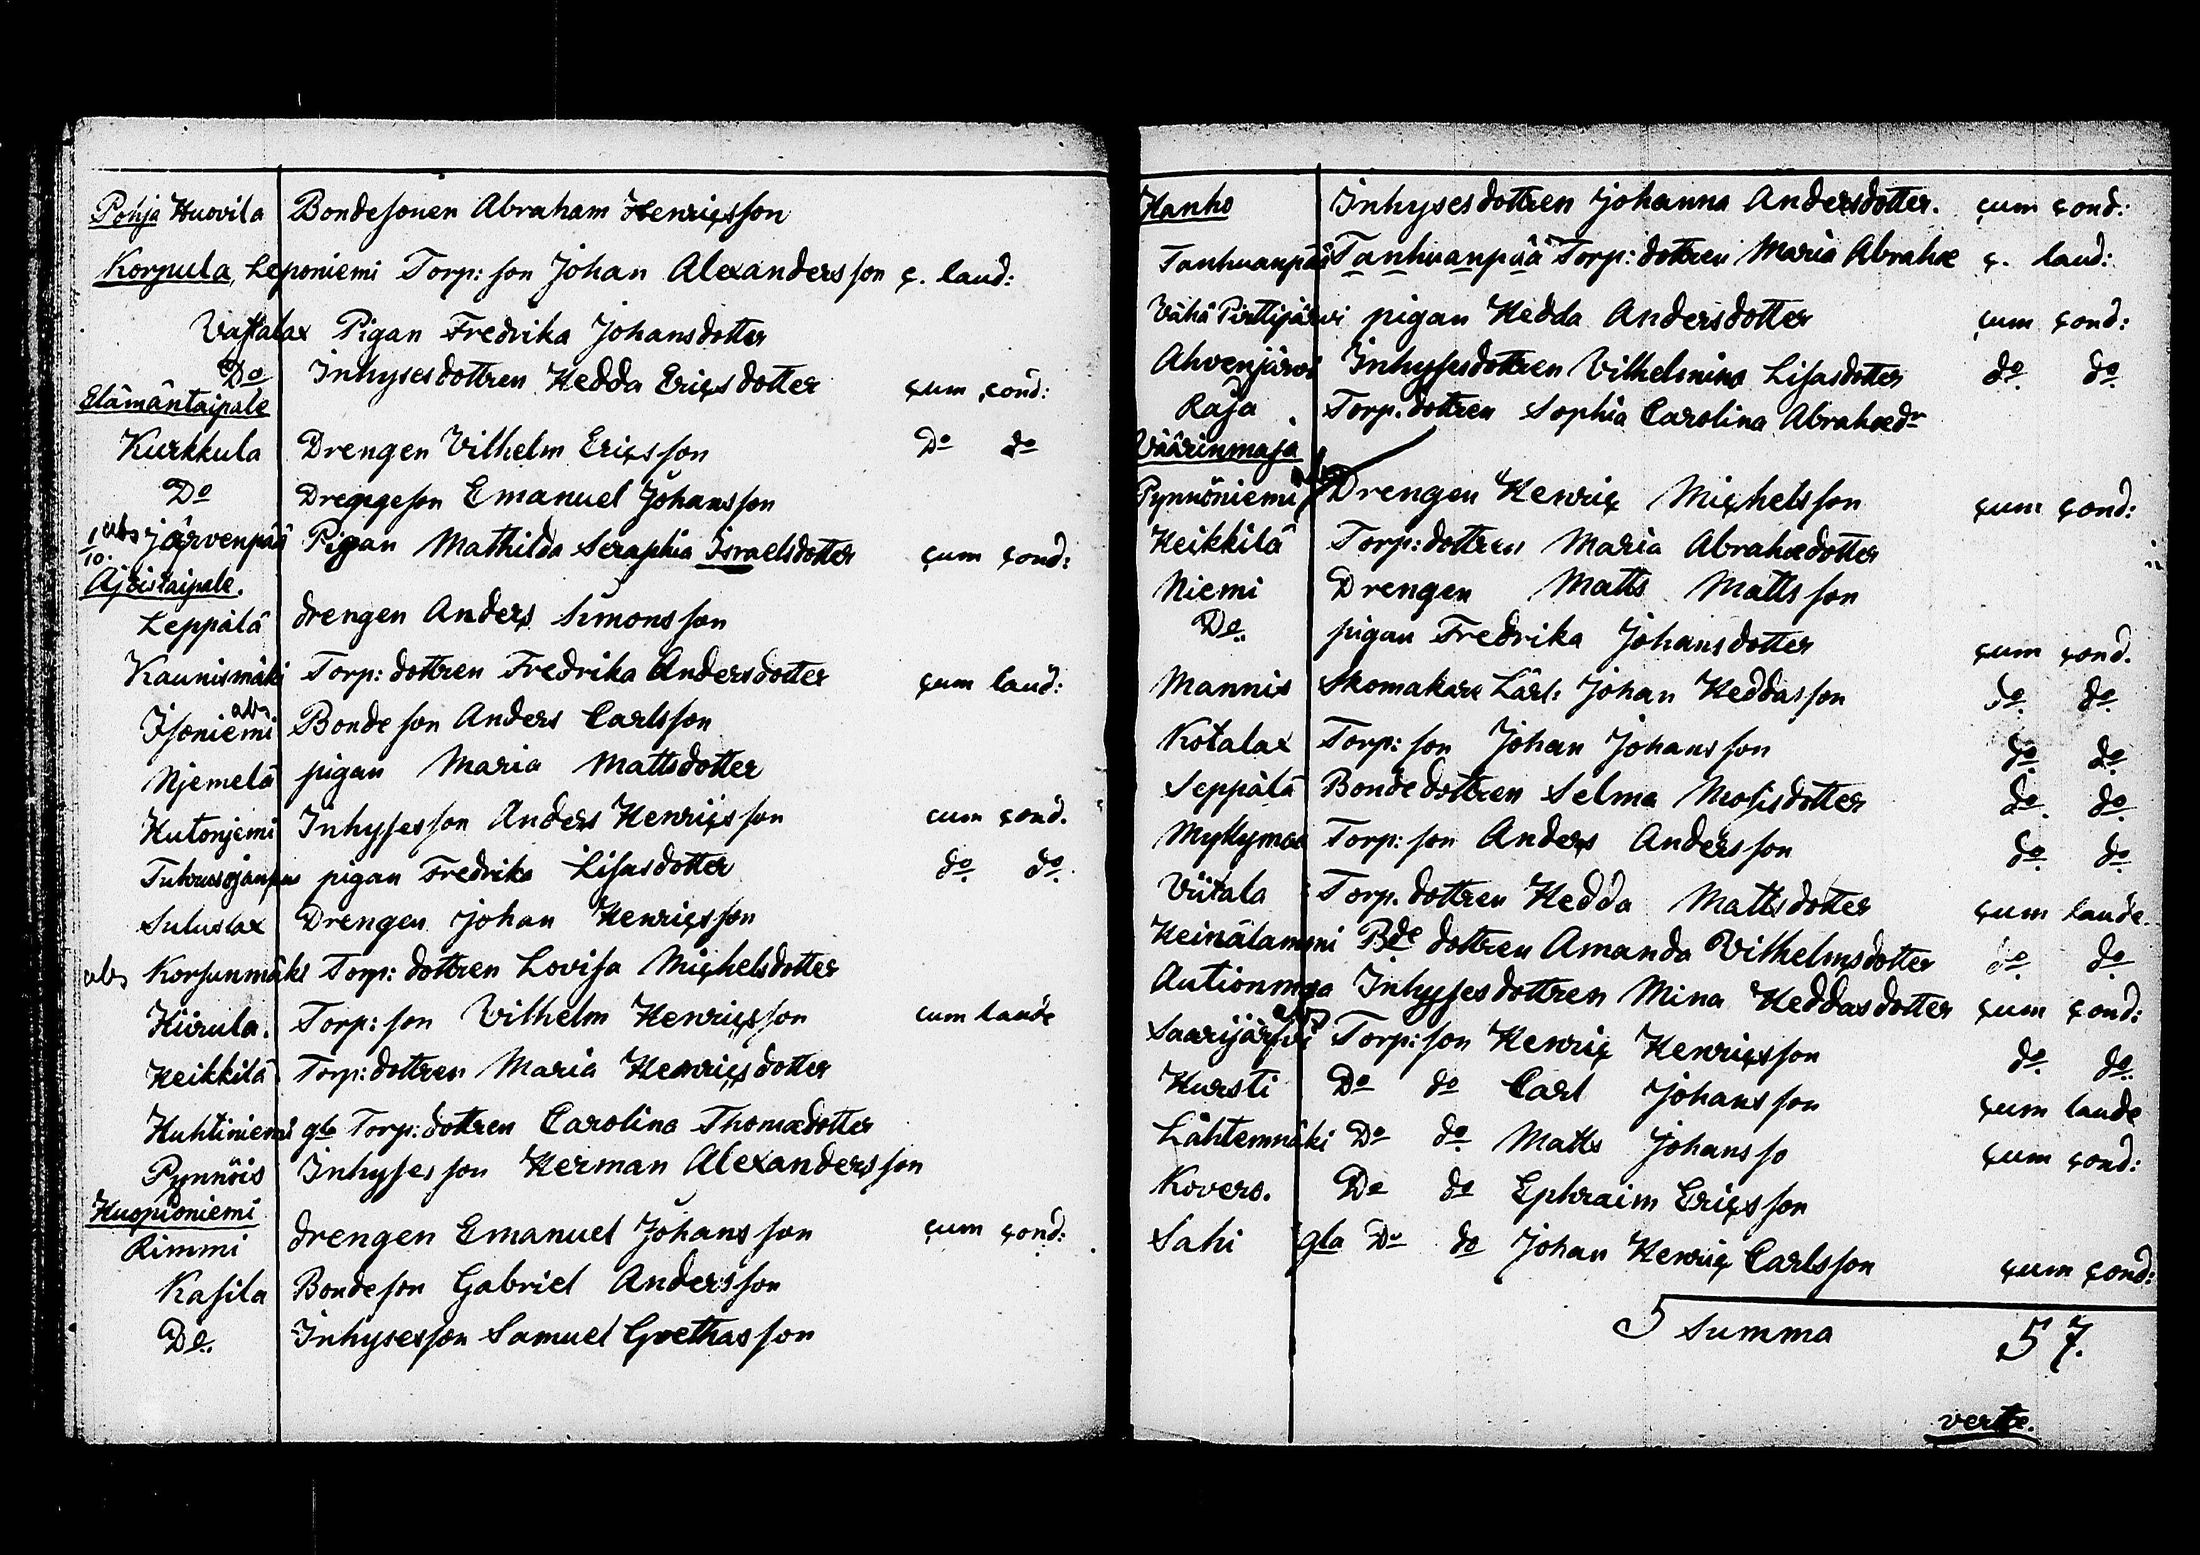 Pohja Huovila Bondesonen Abraham Henriçsson
Korpula, Leponiemi Torp: son Johan Alexandersson ç. laud:
Vastalax Pigan Fredrika Johansdotter
Do Inhysesdottren Hedda Eriçsdotter çum çond:
Elämäntaipale
Kurkkula Drengen Vilhelm Eriçsson Do do
Do Drengeson Emanuel Johansson
1/10. abs järvenpää Pigan Mathilda Seraphia Israelsdotter çum çond:
Ajostaipale.
Leppälä drengen Anders Simonsson
Kaunismäki Torp: dottren Fredrika Andersdotter çum laud:
abs
Isoniemi Bondeson Anders Carlsson
Njemelä pigan Maria Mattsdotter
Hutonjemi Inhysesson Anders Henriçsson cum çond.
pigan Fredrika Lisasdotter do. do.
Suluslax Drengen Johan Henriçsson
abs Korsunmäki Torp: dottren Lovisa Miçhelsdotter
Hiirula. Torp: son Vilhelm Henriçsson cum laude
Heikkilä Torp: dottren Maria Henriçsdotter
Huhtiniemi gla Torp: dottren Carolina Thomædotter
Pynnöis Inhyses son Herman Alexandersson
Huopioniemi
Rimmi drengen Emanuel Johansson çum çond:
Kasila Bondeson Gabriel Andersson
Do. Inhysesson Samuel Grethasson
Hanho Inhysesdottren Johanna Andersdotter. çum çond:
Tanhuanpää Tanhuanpää Torp: dottren Maria Abrahæ ç. laud:
Vähä Pirttijärvi pigan Hedda Andersdotter çum çond:
Ahvenjärvi Inhysesdottren Vilhelmina Lisasdotter do. do.
Raja Torp. dottren Sophia Carolina Abrahædr
Väärinmaja
Pynnöniemi Drengen Henriç Miçhelsson çum çond:
Heikkilä Torp: dottren Maria Abrahædotter
Niemi Drengen Matts Mattsson
Do. pigan Fredrika Johansdotter çum çond.
Mannis Skomakare Lärl: Johan Heddasson do. do.
Kotalax Torp: son Johan Johansson do. do.
Seppälä Bondedottren Selma Mosisdotter do. do.
Myllymaa Torp: son Anders Andersson do. do.
Viitala Torp. dottren Hedda Mattsdotter çum laude.
Heinälammi Bde dottren Amanda Vilhelmsdotter do. do
Autionmaa Inhysesdottren Mina Heddasdotter çum çond:
abs
Saarijärfvi Torp: son Henriç Henriçsson do. do.
Hursti Do do Carl Johansson çum laude
Lähtemmäki Do do. Matts Johansso çum çond:
Kovero. Do do Ephraim Eriçsson
Sahi gla Do do Johan Henriç Carlsson çum çond:
Summa 57.
verte.